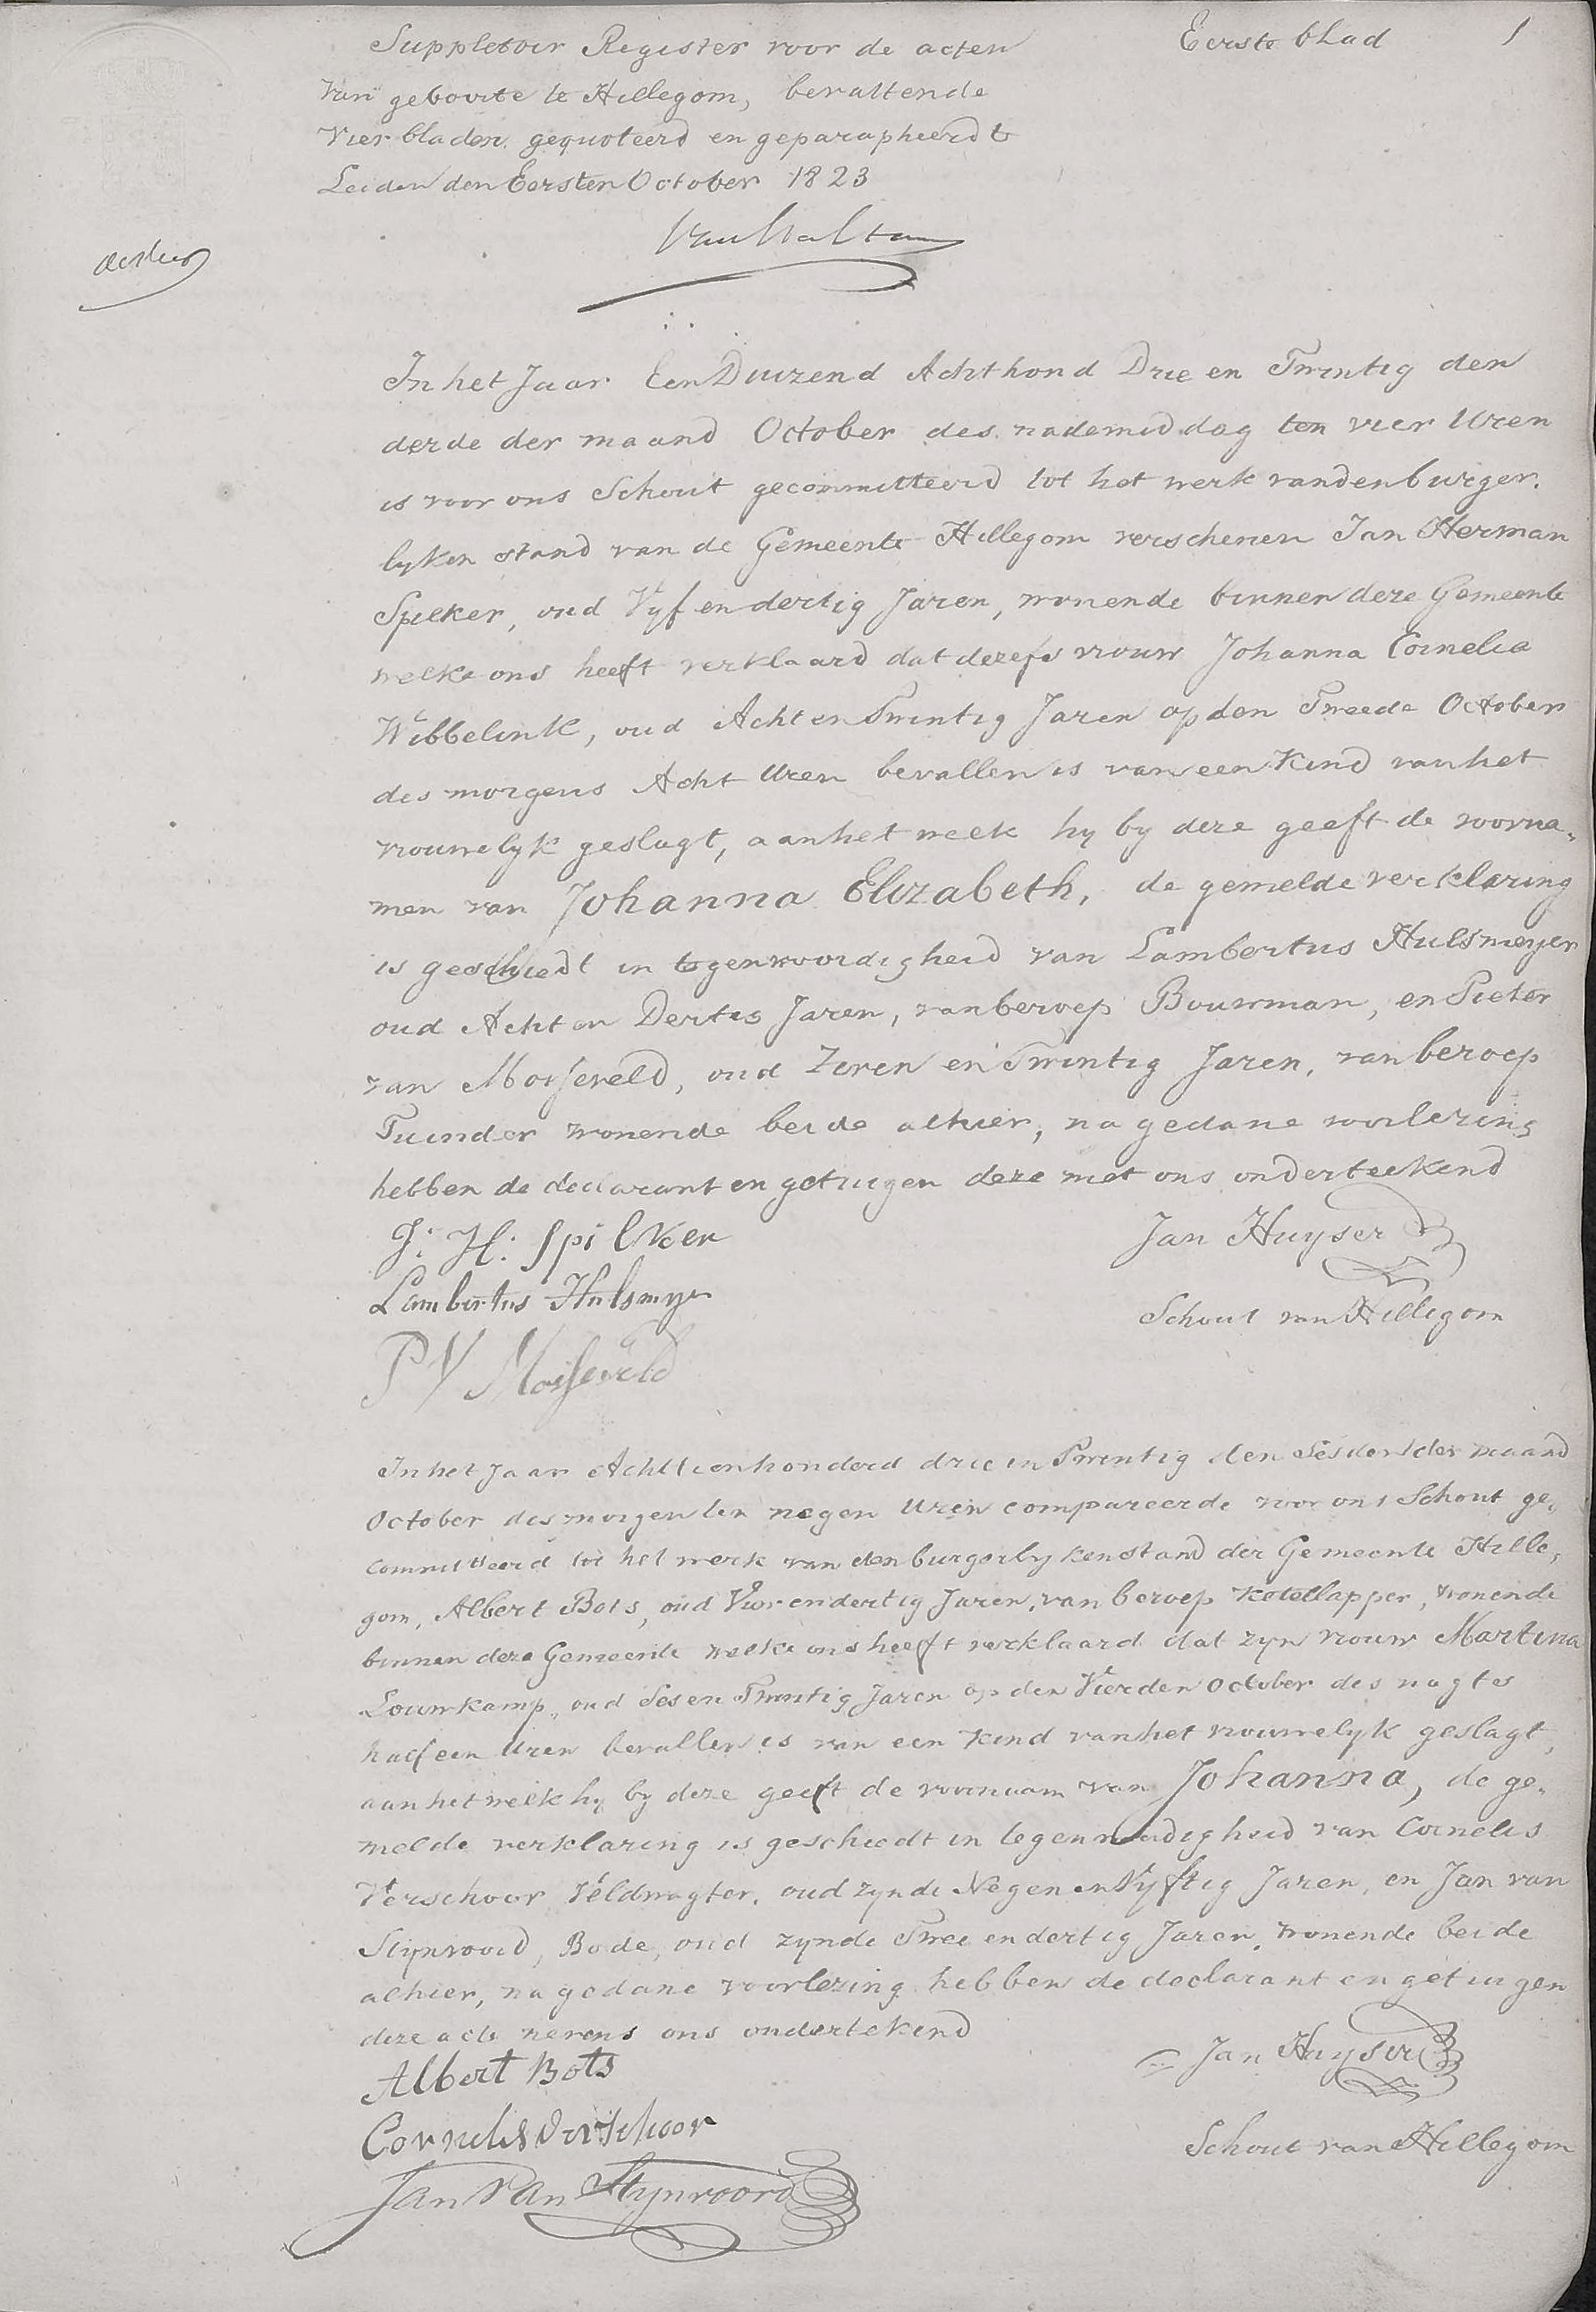 Suppletoir Register voor de acten
Eerste blad
1
van geboorte te Hillegom, bevattende
Vier bladen gequoteerd en geparapheerd te
Leiden den Eersten October 1823
In het Jaar Een Duizend Achthond Drie en Twintig den
derde der maand October des nademiddag ten vier Uren
is voor ons Schout gecommitteerd tot het werk van den burger.
lyken stand van de Gemeente Hillegom verschenen Jan Herman
Spilker, oud Vyf en dertig Jaren, wonende binnen deze Gemeente
welke ons heeft verklaard dat dezefs vrouw Johanna Cornelia
Wibbelink, oud Acht en Twintig Jaren op den Tweede October
des morgens Acht Uren bevallen is van een Kind van het
vrouwelyk geslagt, aan het welk hy by deze geeft de voorna,
men van Johanna Elizabeth, de gemelde verklaring
is geschiedt in tegenwoordigheid van Lambertus Hulsmeyer
oud Acht en Dertig Jaren, van beroep Bouwman, en Pieter
van Moiseveld, oud Zeven en Twintig Jaren, van beroep
Tuinder wonende beide alhier, na gedane voorlezing
hebben de declarant en getuigen deze met ons onderteekend
J: H: Spilker
Jan Huyser
Lambertus Hulsmyer
Schout van Hillegom
P V Moiseveld
In het Jaar Achttienhonderd drie en Twintig den Sesden der maand
October des morgen ten negen Uren compareerde voor ons Schout ge,
committeerd tot het werk van den burgerlyken stand der Gemeente Hille,
gom, Albert Bots, oud Vier en dertig Jaren, van beroep Ketellapper, wonende
binnen deze Gemeente welke ons heeft verklaard dat zyn vrouw Martina
Louwkamp, oud Ses en Twintig Jaren op den Vierden October des nagts
half een Uren bevallen is van een Kind van het vrouwelyk geslagt,
aan het welk hy by deze geeft de voornaam van Johanna, de ge,
melde verklaring is geschiedt in tegenwoordigheid van Cornelis
Verschoor Veldwagter, oud zynde Negen en Vyftig Jaren, en Jan van
Stynvoord, Bode, oud zynde Twee en dertig Jaren, wonende beide
alhier, na gedane voorlezing hebben de declarant en getuigen
deze acte nevens ons ondertekend
Jan Huyser
Albert Bots
Cornelis Verschoor
Schout van Hillegom
Jan Van Stynvoord